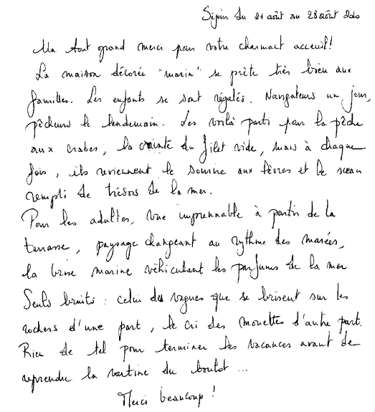 Séjour du 21 août au 28 août 2010
Un tout grand merci pour votre charmant acceuil !
La maison décorée "marin" se prête très bien aux
familles. Les enfants se sont régalés. Navigateurs un jour,
pêcheurs le lendemain. Les voilà partis pour la pêche
aux crabes, la crainte du filet vide, mais à chaque
fois, ils reviennent le sourire aux lèvres et le sceau
rempli de trésors de la mer.
Pour les adultes, vue imprennable à partir de la
terrasse, paysage changeant au rythme des marées,
la brise marine véhiculant les parfums de la mer
Seuls bruits : celui des vagues que se brisent sur les
rochers d'une part, le cri des mouettes d'autre part.
Rien de tel pour terminer les vacances avant de
reprendre la routine du boulot ...
Merci beaucoup !